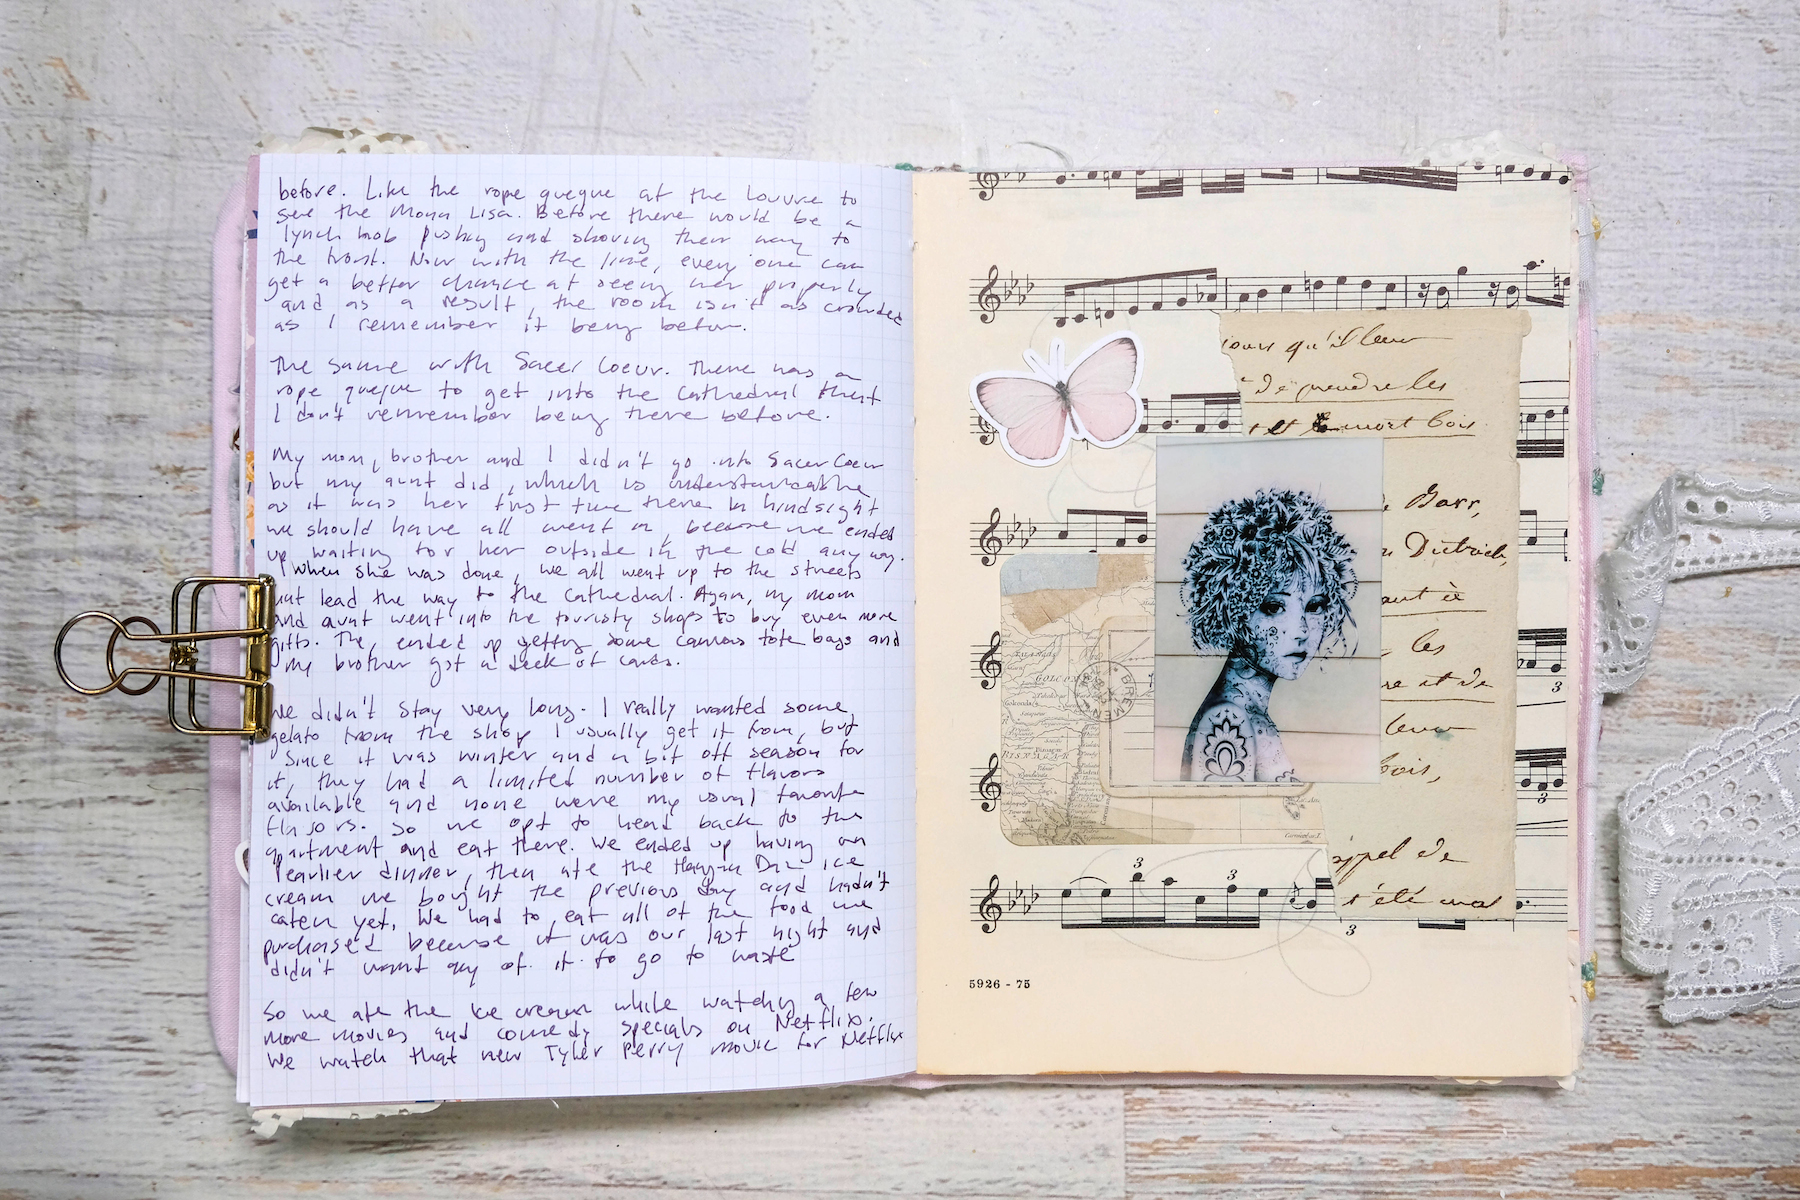 before. Like the rope queque at the Louvre to
see the Mona Lisa. Before there would be a
lynch mob pushing and shoving their way to
the front. Now with the line, every one can
get a better chance at seeing her properly
and as a result, the room isn't as crowded
as I remember it being before.
The same with Sacer Coeur. There was a
rope queque to get into the Cathedral that
I don't remember being there before.
My mom, brother and I didn't go into Sacer Coeur
but my aunt did, which is understandable
as it was her first time there. In hindsight
we should have all went in, because we ended
up waiting for her outside in the cold any way.
When she was done, we all went up to the streets
that lead the way to the Cathedral. Again, my mom
and aunt went into the touristy shops to buy even more
gifts. The, ended up getting some canvas tote bags and
my brother got a deck of cards.
We didn't stay very long. I really wanted some
gelato from the shop I usually get it from, but
since it was winter and a bit off season for
it, they had a limited number of flavors
available and none were my usual favorite
flavors. So we opt to head back to the
apartment and eat there. We ended up having an
earlier dinner, then ate the Haagen Daz ice
cream we bought the previous day and hadn't
eaten yet. We had to eat all of the food we
purchased because it was our last night and
didn't want any of it to go to waste
So we ate the Ice cream while watching a few
more movies and comedy specials on Netflix.
We watch that new Tyler Perry movie for Netflix
qu'il leur
de prendre les
et mort bois
Barr,
Dietrich,
les
et de
leur
bois,
de
été mal
GOLCONDA
BREMEN
3
3
3
3
3
5926 - 75